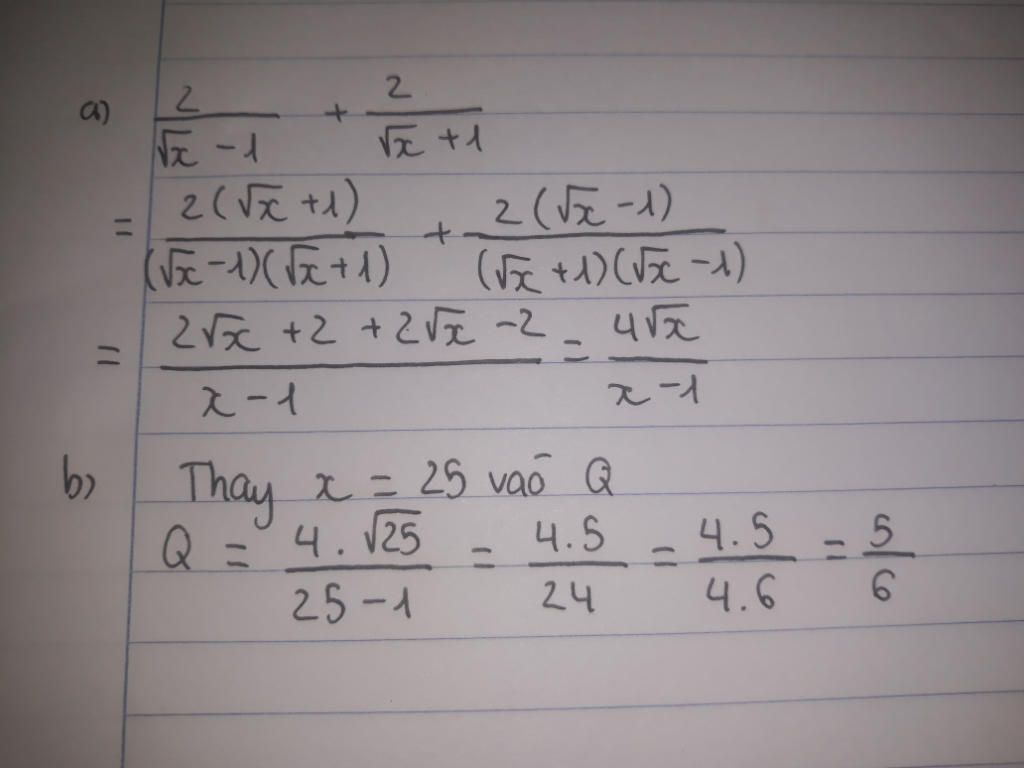 a) 2/(√x - 1) + 2/(√x + 1)
= 2(√x + 1)/((√x - 1)(√x + 1)) + 2(√x - 1)/((√x + 1)(√x - 1))
= (2√x + 2 + 2√x - 2)/(x - 1) = 4√x/(x - 1)
b) Thay x = 25 vào Q
Q = (4.√25)/(25 - 1) = 4.5/24 = 4.5/4.6 = 5/6